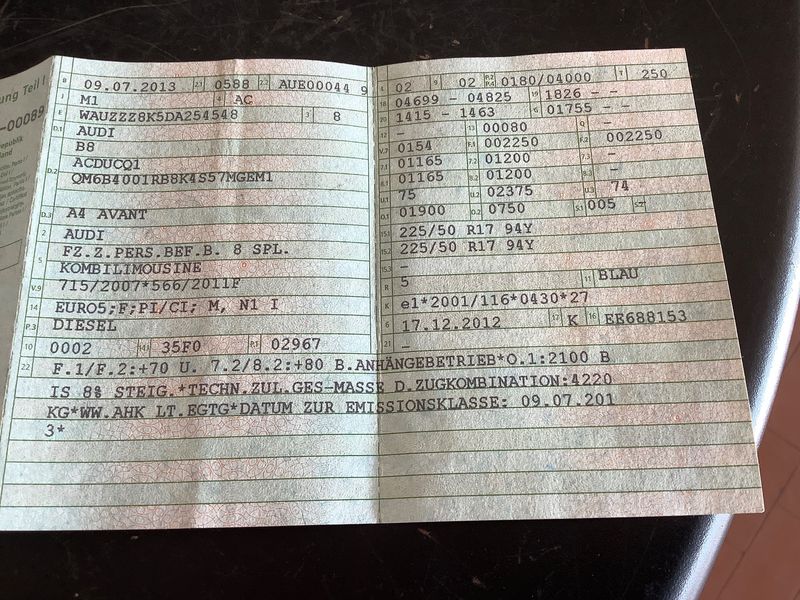 ung Teil I
-00089
epublik
land
B 09.07.2013 2.1 0588 2.2 AUE00044 9
J M1 4 AC
E WAUZZZ8K5DA254548 3 8
D.1 AUDI
B8
D.2 ACDUCQ1
QM6B4001RB8K4S57MGEM1
D.3 A4 AVANT
2 AUDI
5 FZ.Z.PERS.BEF.B. 8 SPL.
KOMBILIMOUSINE
V.9 715/2007*566/2011F
14 EURO5;F;PI/CI; M, N1 I
P.3 DIESEL
10 0002 14.1 35F0 P.1 02967
L 02 9 02 P.2 P.4 0180/04000 T 250
18 04699 - 04825 19 1826 - -
20 1415 - 1463 G 01755 - -
12 - 13 00080 Q -
V.7 0154 F.1 002250 F.2 002250
7.1 01165 7.2 01200 7.3 -
8.1 01165 8.2 01200 8.3 -
U.1 75 U.2 02375 U.3 74
O.1 01900 O.2 0750 S.1 005 S.2 -
15.1 225/50 R17 94Y
15.2 225/50 R17 94Y
15.3 -
R 5 11 BLAU
K e1*2001/116*0430*27
6 17.12.2012 17 K 16 EE688153
21 -
22 F.1/F.2:+70 U. 7.2/8.2:+80 B.ANHÄNGEBETRIEB*O.1:2100 B
IS 8% STEIG.*TECHN.ZUL.GES-MASSE D.ZUGKOMBINATION:4220
KG*WW.AHK LT.EGTG*DATUM ZUR EMISSIONSKLASSE: 09.07.201
3*